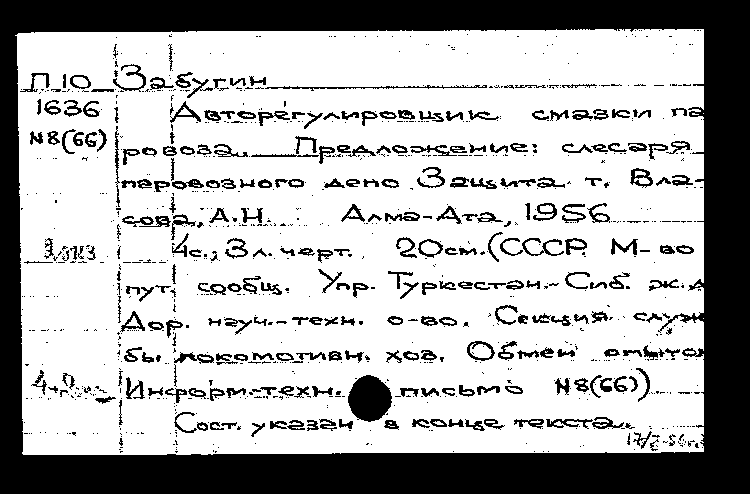 П10 Забугин
1636 Авторегулировщик смазки па
N8(66) ровоза. Предложение: слесаря
паровозного депо Защита т. Вла-
сова, А.Н. Алма-Ата, 1956
4с., 3 л. черт. 20см. (СССР. М-во
пут. сообщ. Упр. Туркестан.-Сиб. ж.д
Дор. науч.-техн. о-во. Секция служ
бы локомотивн. хоз. Обмен опыто
Информ.-техн. письмо N8(66))
Сост. указан в конце текста.